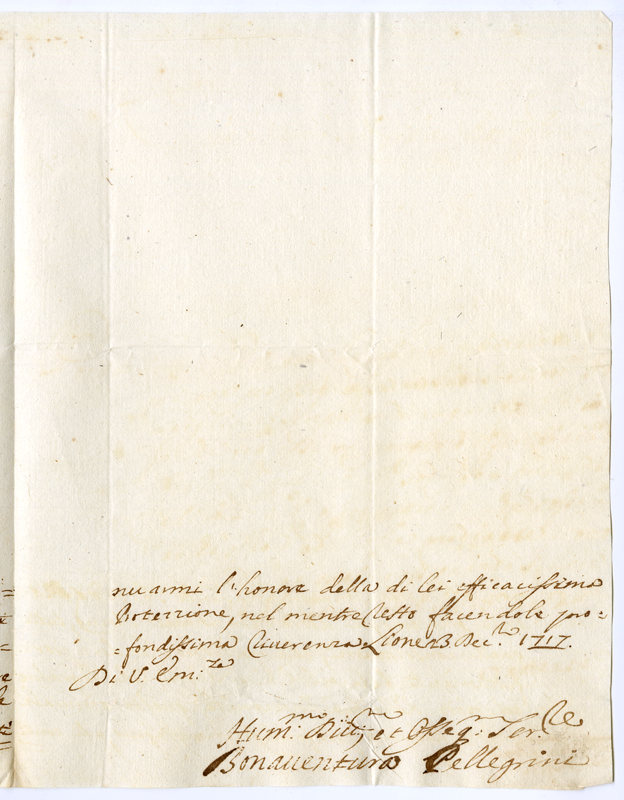 nuarmi l'honore della di lei efficacissima
Protezzione, nel mentre resto facendole pro=
=fondissima riverenza. Lione 23 Dec.re 1717.
Di V. Em.za
Hum.mo Div.mo, et Osseq.mo Ser.re
Bonaventura Pellegrini